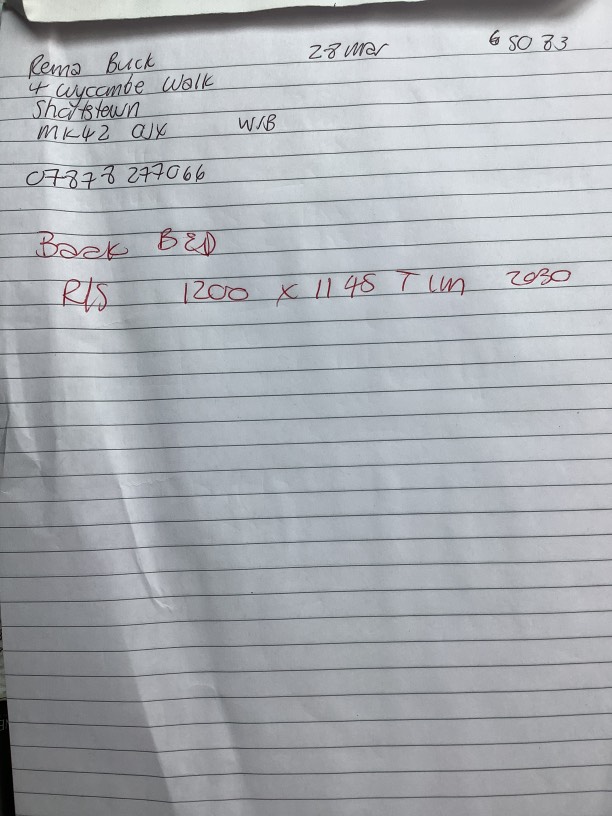 Rema Buck 28 Mar 6 50 83
4 Wycombe Walk
Shortstown
MK42 0UX W/B
07878 277066
Back BED
R/S 1200 x 1145 T Lin 2030